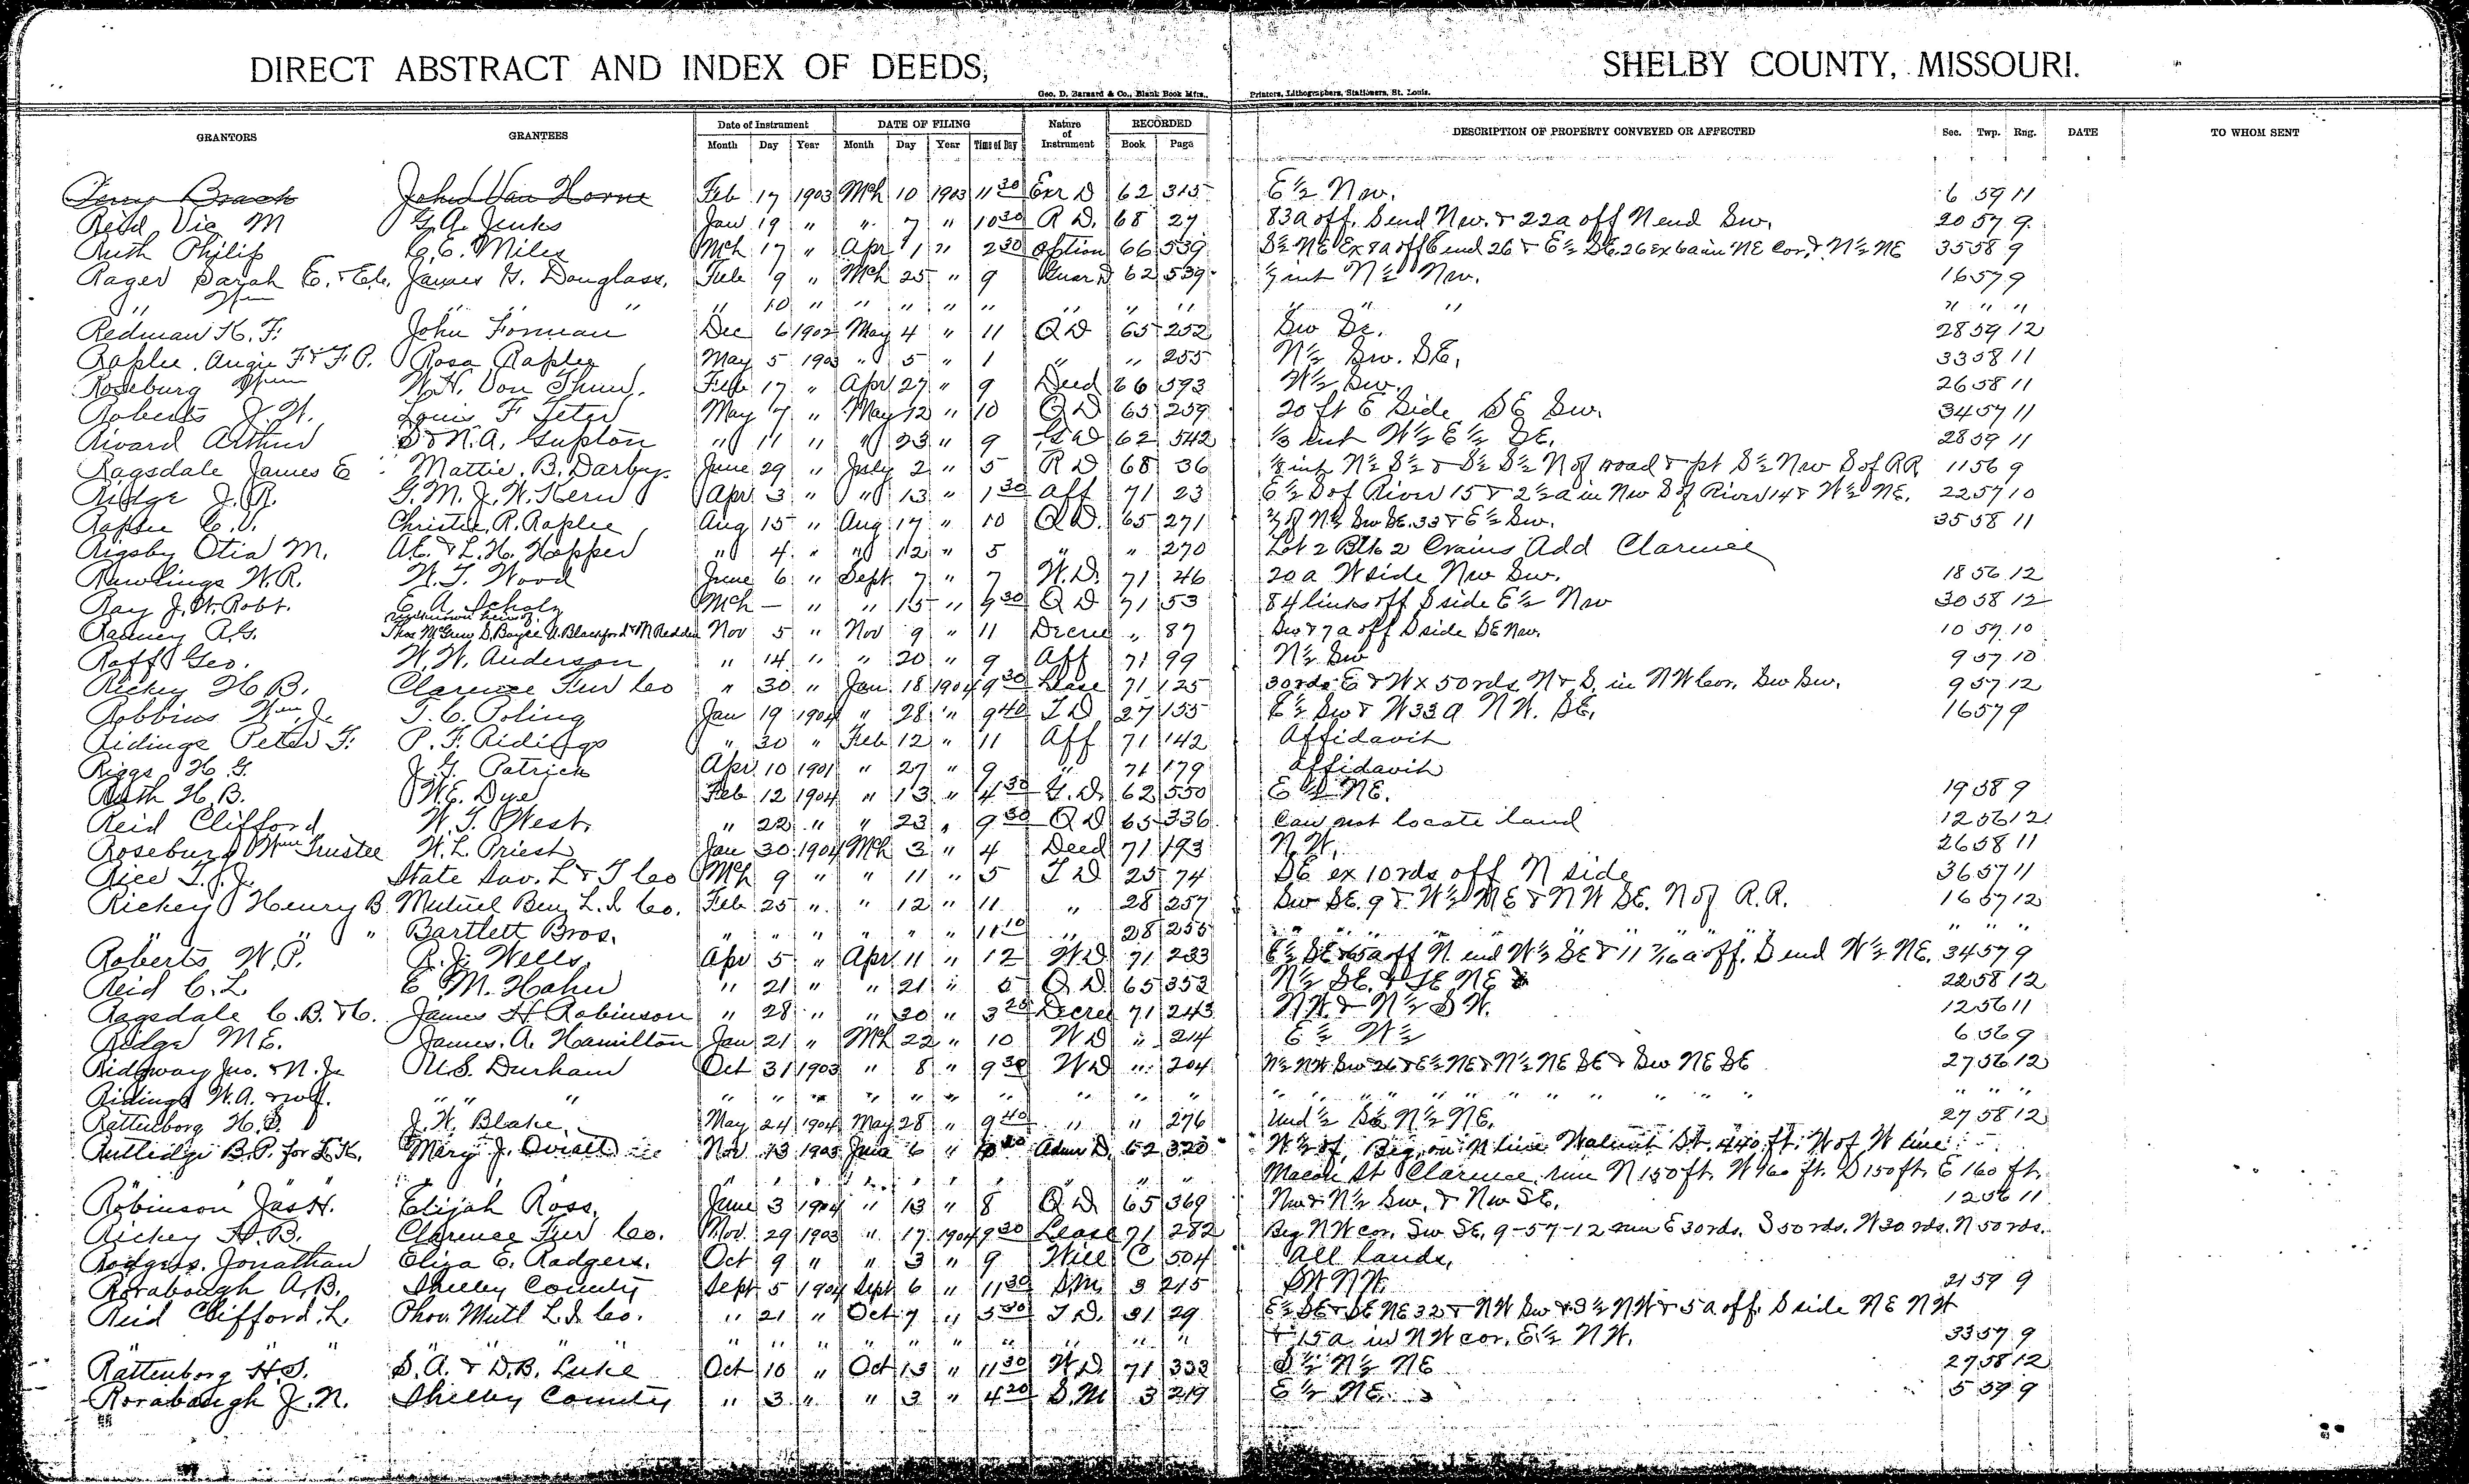 DIRECT ABSTRACT AND INDEX OF DEEDS, SHELBY COUNTY, MISSOURI.
Geo. D. Barnard & Co., Blank Book Mfrs., Printers, Lithographers, Stationers, St. Louis.
GRANTORS GRANTEES Date of Instrument DATE OF FILING Nature of Instrument RECORDED DESCRIPTION OF PROPERTY CONVEYED OR AFFECTED Sec. Twp. Rng. DATE TO WHOM SENT
Month Day Year Month Day Year Time of Day Book Page
John Van Horne Feb 17 1903 Mch 10 1903 11 30 Exr D 62 315 E 1/2 Nw. 6 59 11
Reid Vic M G.A. Jenks Jan 19 " " 7 " 10 30 R D. 68 27 83a off. S end Nw. & 22a off N end Sw. 20 57 9
Ruth Philip G.E. Miles Mch 17 " Apr 1 " 2 30 option 66 539 S 1/2 NE Ex 8a off E end 26 & E 1/2 SE. 26 ex 6a in NE Cor. & N 1/2 NE 35 58 9
Rager Sarah E. & Etc. James G. Douglass, Feb 9 " Mch 25 " 9 Guar D 62 539 int N 1/2 Nw. 16 57 9
" Wm " " " 10 " " " " " " " " " " " " " "
Redman H. F. John Forman Dec 6 1902 May 4 " 11 Q D 65 252 Sw Se. 28 59 12
Raplee Angie F & F P. Rosa Raplee May 5 1903 " 5 " 1 " " 255 N 1/2 Sw. SE. 33 58 11
Roseburg Wm W. H. Von Thun. Feb 17 " Apr 27 " 9 Deed 66 593 W 1/2 Sw. 26 58 11
Roberts J. W. Louis F Teter May 7 " May 12 " 10 Q D 65 259 20 ft E Side SE Sw. 34 57 11
Rivard Arthur S & N.A. Gupton " 11 " " 23 " 9 G D 62 542 1/3 Int W 1/2 E 1/2 SE. 28 59 11
Ragsdale James E Mattie. B. Darby. June 29 " July 2 " 5 R D 68 36 1/8 int N 1/2 S 1/2 & S 1/2 S 1/2 N of road & pt S 1/2 Nw S of RR 11 56 9
Ridge J. R. G. M. J. W. Kern Apr 3 " " 13 " 1 30 Aff 71 23 E 1/2 S of River 15 & 2 1/2 a in Nw S of River 14 & W 1/2 NE. 22 57 10
Raplee C. V. Christie. R. Raplee Aug 15 " Aug 17 " 10 Q D. 65 271 of N 1/2 Sw SE. 33 & E 1/2 Sw. 35 58 11
Rigsby Otia M. A.E. & L. H. Hopper " 4 " " 12 " 5 " " 270 Lot 2 Blk 2 Crains Add Clarence
Rawlings W. R. W. T. Wood June 6 " Sept 7 " 7 W. D. 71 46 20 a W side Nw Sw. 18 56 12
Ray J. W. Robt. E. A. Scholz Mch — " " 15 " 9 30 Q D 71 53 84 links off S side E 1/2 Nw 30 58 12
unknown heirs of
Ranney A.G. Thos McGrew S. Boyce A. Blackford & M Redden Nov 5 " Nov 9 " 11 Decree " 87 Sw & 7 a off S side SE Nw. 10 57 10
Raff Geo. W. W. Anderson " 14 " " 20 " 9 Aff 71 99 N 1/2 Sw 9 57 10
Rickey H B. Clarence Fur Co " 30 " Jan. 18 1904 9 30 Lease 71 125 30 rds E & W x 50 rds N & S. in NW Cor. Sw Sw. 9 57 12
Robbins Wm J. T. C. Poling Jan 19 1904 " 28 " 9 40 T D 27 155 E 1/2 Sw & W 33 a N W. SE. 16 57 9
Ridings Peter F. P. F. Ridings " 30 " Feb 12 " 11 Aff 71 142 Affidavit
Riggs H. G. J. G. Patrick Apr 10 1901 " 27 " 9 " 71 179 Affidavit
Ruth H. B. W. E. Dye Feb 12 1904 " 13 " 4 30 G. D. 62 550 E 1/2 NE. 19 58 9
Reid Clifford W. T. West. " 22 " " 23 " 9 30 Q D 65 336 Can not locate land 12 56 12
Roseburg Wm Trustee W. L. Priest Jan 30 1904 Mch 3 " 4 Deed 71 193 N. W. 26 58 11
Rice T. J. J. State Sav. L & T Co Mch 9 " " 11 " 5 T D 25 74 SE ex 10 rds off N side 36 57 11
Rickey Henry B Mutuel Ben L. I. Co. Feb 25 " " 12 " 11 " 28 257 Sw SE. 9 & W 1/2 NE & N W SE. N of R. R. 16 57 12
" " Bartlett Bros. " " " " " " 11 10 " 28 255 " " " " " "
Roberts W. P. R. J. Wells. Apr 5 " Apr 11 " 12 W D 71 233 E 1/2 SE & 65a off N end W 1/2 SE & 11 7/16 a off. S end W 1/2 NE. 34 57 9
Reid C. L E. M. Hahn " 21 " " 21 " 5 Q D. 65 353 N 1/2 SE. & SE NE 22 58 12
Ragsdale C. B. & C. James H Robinson " 28 " " 30 " 3 25 Decree 71 243 N W. & N 1/2 S W. 12 56 11
Ridge M E. James. A. Hamilton Jan 21 " Mch 22 " 10 W D " 214 E 1/2 W 1/2 6 56 9
Ridgway Jno. & N. J. U. S. Durham Oct 31 1903 " 8 " 9 30 W D " 204 N 1/2 NW Sw 26 & E 1/2 NE & N 1/2 NE SE & Sw NE SE 27 56 12
Ridings W. A. & wf. " " " " " " " " " " " " " " " " " " " " " " " "
Rattenborg H. S. J. W. Blake. May 24 1904 May 28 " 9 40 " " 276 Und 1/2 S 1/2 N 1/2 NE. 27 58 12
Rutlidge B. P. for L. K. Mary J. Oviatt Nov 13 1903 June 6 " Admr D. 62 320 W 1/2 of, Beg. on N line Walnut St. 440 ft. W of W line
" " " " " " " " " Macon St Clarence. run N 150 ft. W 160 ft. S 150 ft. E 160 ft.
Robinson Jas H. Elijah Ross. June 3 1904 " 13 " 8 Q D. 65 369 Nw & N 1/2 Sw. & Nw SE. 12 56 11
Rickey H. B. Clarence Fur Co. Nov. 29 1903 " 17 1904 9 30 Lease 71 282 Beg N W cor. Sw SE. 9-57-12 run E 30 rds. S 50 rds. W 30 rds. N 50 rds.
Rodgers. Jonathan Eliza E. Rodgers. Oct 9 " " 3 " 9 Will C 504 All lands.
Rorabaugh A. B. Shelby County Sept 5 1904 Sept 6 " 11 30 S.M. 3 215 SW NW. 21 59 9
Reid Clifford. L Phov. Mutl L. I. Co. " 21 " Oct 7 " 3 30 T D. 31 29 E 1/2 SE & SE NE 32 & NW Sw & S 1/2 NW & 5 a off. S side NE NW
" " " " " " " " " " " & 15 a in N W cor. E 1/2 N W. 33 57 9
Rattenborg H. S. S. A. & D. B. Luke Oct 10 " Oct 13 " 11 30 W D. 71 333 S 1/2 N 1/2 NE 27 58 12
Rorabaugh J. N. Shelby County " 3 " " 3 " 4 20 S. M 3 219 E 1/2 NE. 5 59 9